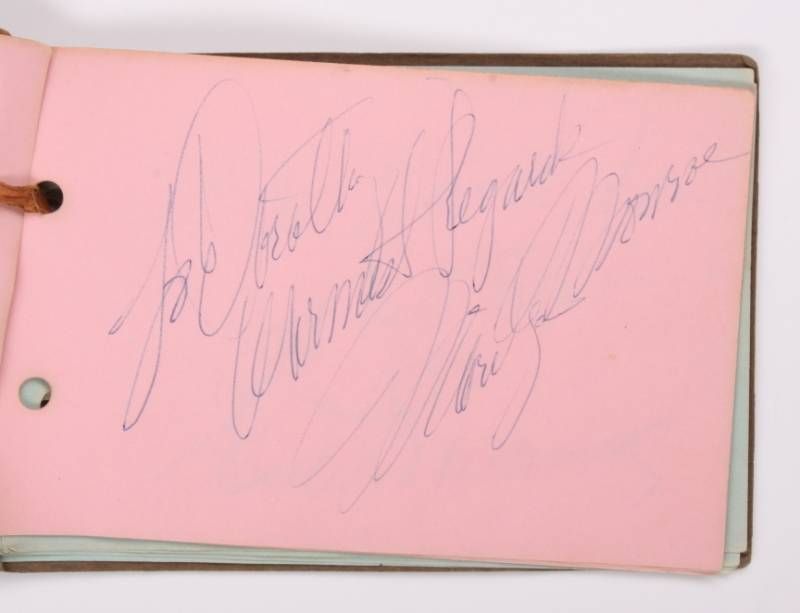 To Dorothy
Warmest Regards
Marilyn Monroe